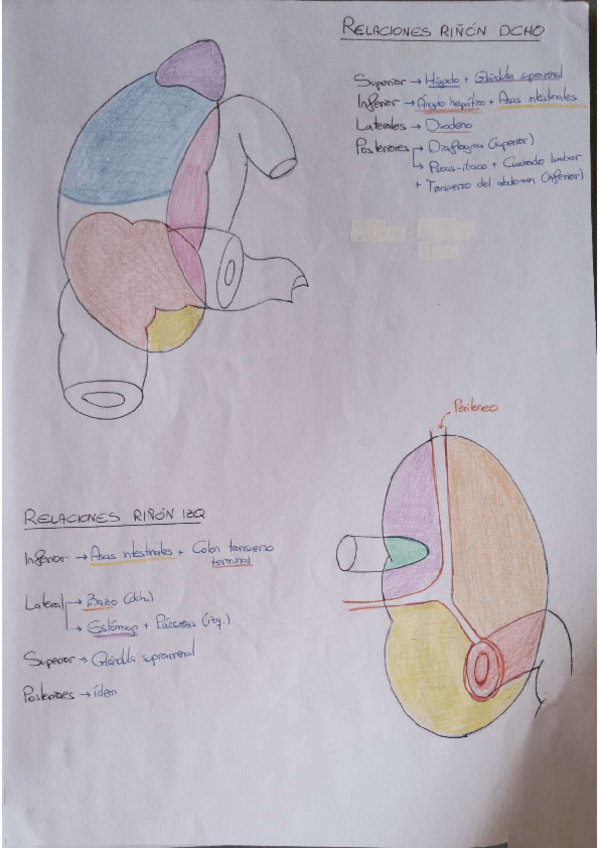 RELACIONES RIÑÓN DCHO
Superior → Hígado + Glándula suprarrenal
Inferior → Ángulo hepático + Asas intestinales
Laterales → Duodeno
Posteriores → Diafragma (superior)
→ Psoas-ilíaco + Cuadrado lumbar
+ Transverso del abdomen (inferior)
Peritoneo
RELACIONES RIÑÓN IZQ
Inferior → Asas intestinales + Colon transverso
terminal
Lateral → Bazo (dcha)
→ Estómago + Páncreas (izq.)
Superior → Glándula suprarrenal
Posteriores → ídem